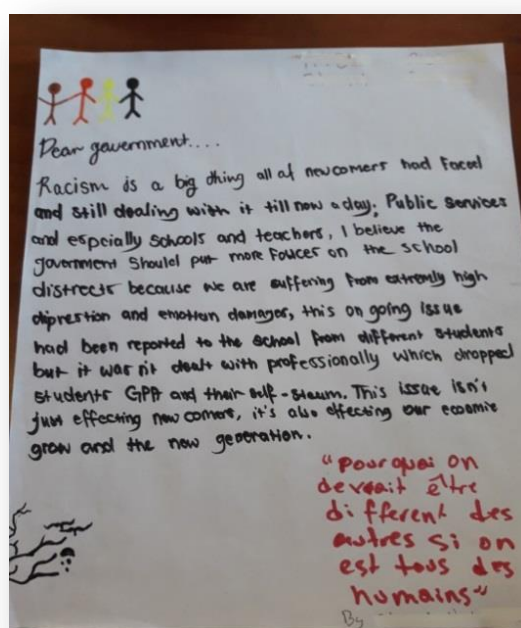 Dear government....
Racism is a big thing all of newcomers had faced
and still dealing with it till now a day; Public Services
and espcially schools and teachers, I believe the
government should put more foucer on the school
distrects because we are suffering from extremly high
diprestion and emotion damages, this on going issue
had been reported to the school from different students
but it was n't dealt with professionally which dropped
students GPA and their self-steum. This issue isn't
just effecting new comers, it's also effecting our ecomic
grow and the new geperation.
"pour quoi on
devrait être
different des
autres si on
est tous des
humains"
By